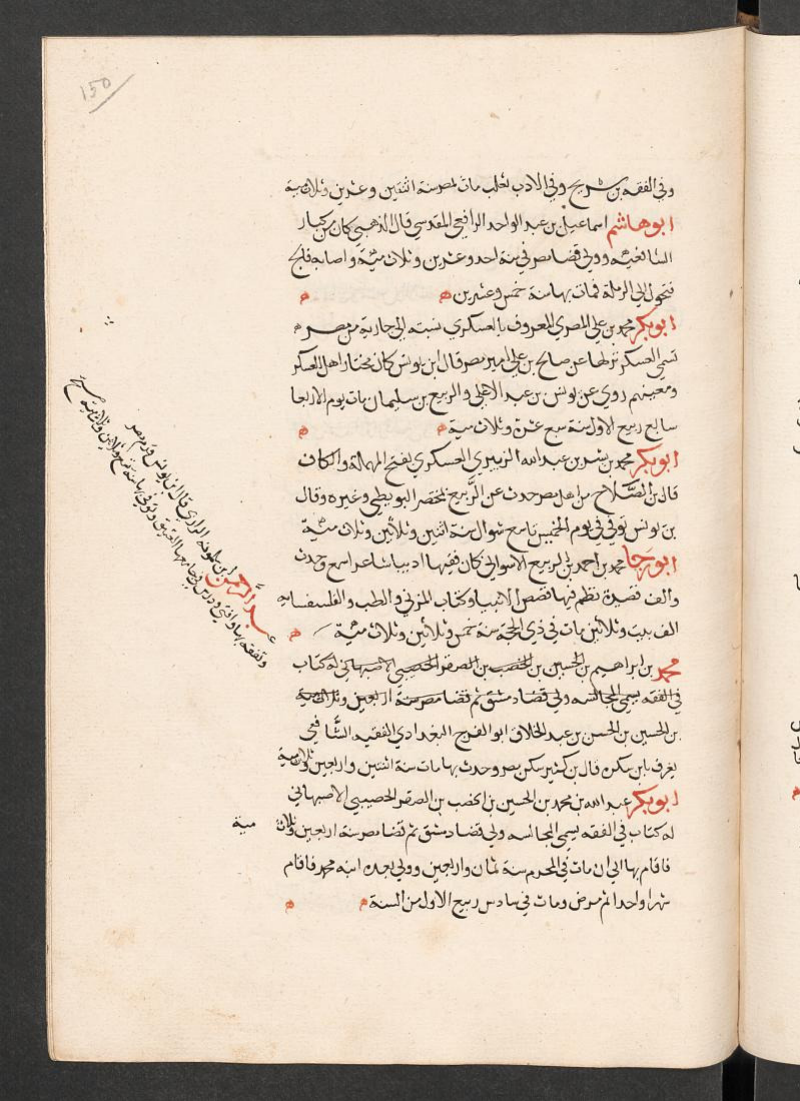 150
وفي الفقه بن سريج وفي الادب ثعلب مات بمصر سنة اثنتين وعشرين وثلاث مية
ابوهاشم اسماعيل بن عبد الواحد الرافعي المقدسي قال الذهبي كان من كبار
الشافعية وولي قضا مصر في سنة احد وعشرين وثلاث مئة واصابه فالج
فتحول الي الرملة فمات بها سنة خمس وعشرين ه ه
ابوبكر محمد بن علي المصري المعروف بالعسكري نسبة الى حارة من مصر
تسمي العسكر نزلها عن صالح بن علي امير مصر قال ابن يونس كان مختار اهل العسكر
ومعينهم روي عن يونس بن عبد الاعلي والربيع بن سليمان مات يوم الاربعا
سابع ربيع الاول سنة سبع عشرة وثلاث مية ه ه
ابوبكر محمد بن بشر بن عبد الله الزبيري العسكري بفتح المهملة والكاف
قال بن الصلاح من اهل مصر حدث عن الربيع بمختصر البويطي وغيره وقال
بن يونس توفي في يوم الخميس تاسع شوال سنة اثنتين وثلاثين وثلاث مئة
ابورجا محمد بن احمد بن الربيع الاسواني كان فقيها اديبا شاعرا سمع وحدث
والف قصيدة نظم فيها قصص الانبيا وكتاب المزني والطب والفلسفة ماية
الف بيت وثلاثين مات في ذي الحجة سنة خمس وثلاثين وثلاث مئة ه
محمد بن ابراهيم بن الحسين بن الخصيب بن الصقر الخصيبي الاصبهاني له كتاب
في الفقه يسمي المجالسه ولي قضا دمشق ثم قضا مصر سنة اربعين وثلاث مية
بن الحسين بن الحسن بن عبد الخلاق ابو الفرج البغدادي الفقيه الشافعي
يعرف بابن سكره قال بن كثير سكن مصر وحدث بها مات سنة اثنتين واربعين وثلاث مية
ابوبكر عبد الله بن محمد بن الحسين بن الخصب بن الصقر الخصيبي الاصبهاني
له كتاب في الفقه يسمي المجالسه ولي قضا دمشق ثم قضا مصر سنة اربعين وثلاث مية
فاقام بها الي ان مات في المحرم سنة ثمان واربعين وولي بعده ابنه محمد فاقام
شهرا واحدا ثم مرض ومات في سادس ربيع الاول من السنة ه ه
عبد الرحمن بن سلمويه الرازي قال ابن يونس قدم مصر
وتفقه بها وافتي ودرس